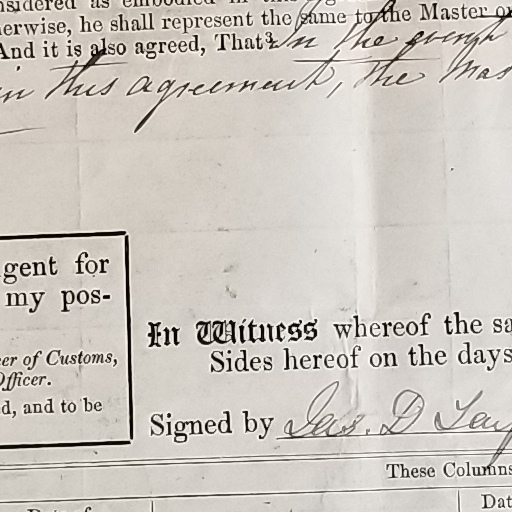 nsidered as embodied in
erwise, he shall represent the same to the Master or
And it is also agreed, That 2 In the event
in this agreement, the Mas
gent for
my pos-
er of Customs,
Officer.
d, and to be
In Witness whereof the sa
Sides hereof on the days
Signed by Jas. D Tay
These Columns
Dat